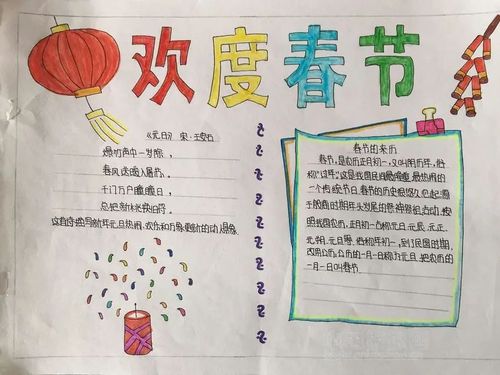 欢度春节
《元日》 宋·王安石
爆竹声中一岁除，
春风送暖入屠苏。
千门万户曈曈日，
总把新桃换旧符。
这首诗描写新年元日热闹，欢乐和万象更新的动人景象
春节的来历
春节，是农历正月初一，又叫阴历年，俗
称“过年”这是我国民间最隆重，最热闹的
一个传统节日，春节的历史很悠久，它起源
于殷商时期年头岁尾的祭神祭祖活动，按
照我国农历，正月初一古称元日、元辰、元正、
元朔、元旦等，俗称年初一，到了民国时期，
改用公历，公历的一月一日称为元旦，把农历的
一月一日叫春节